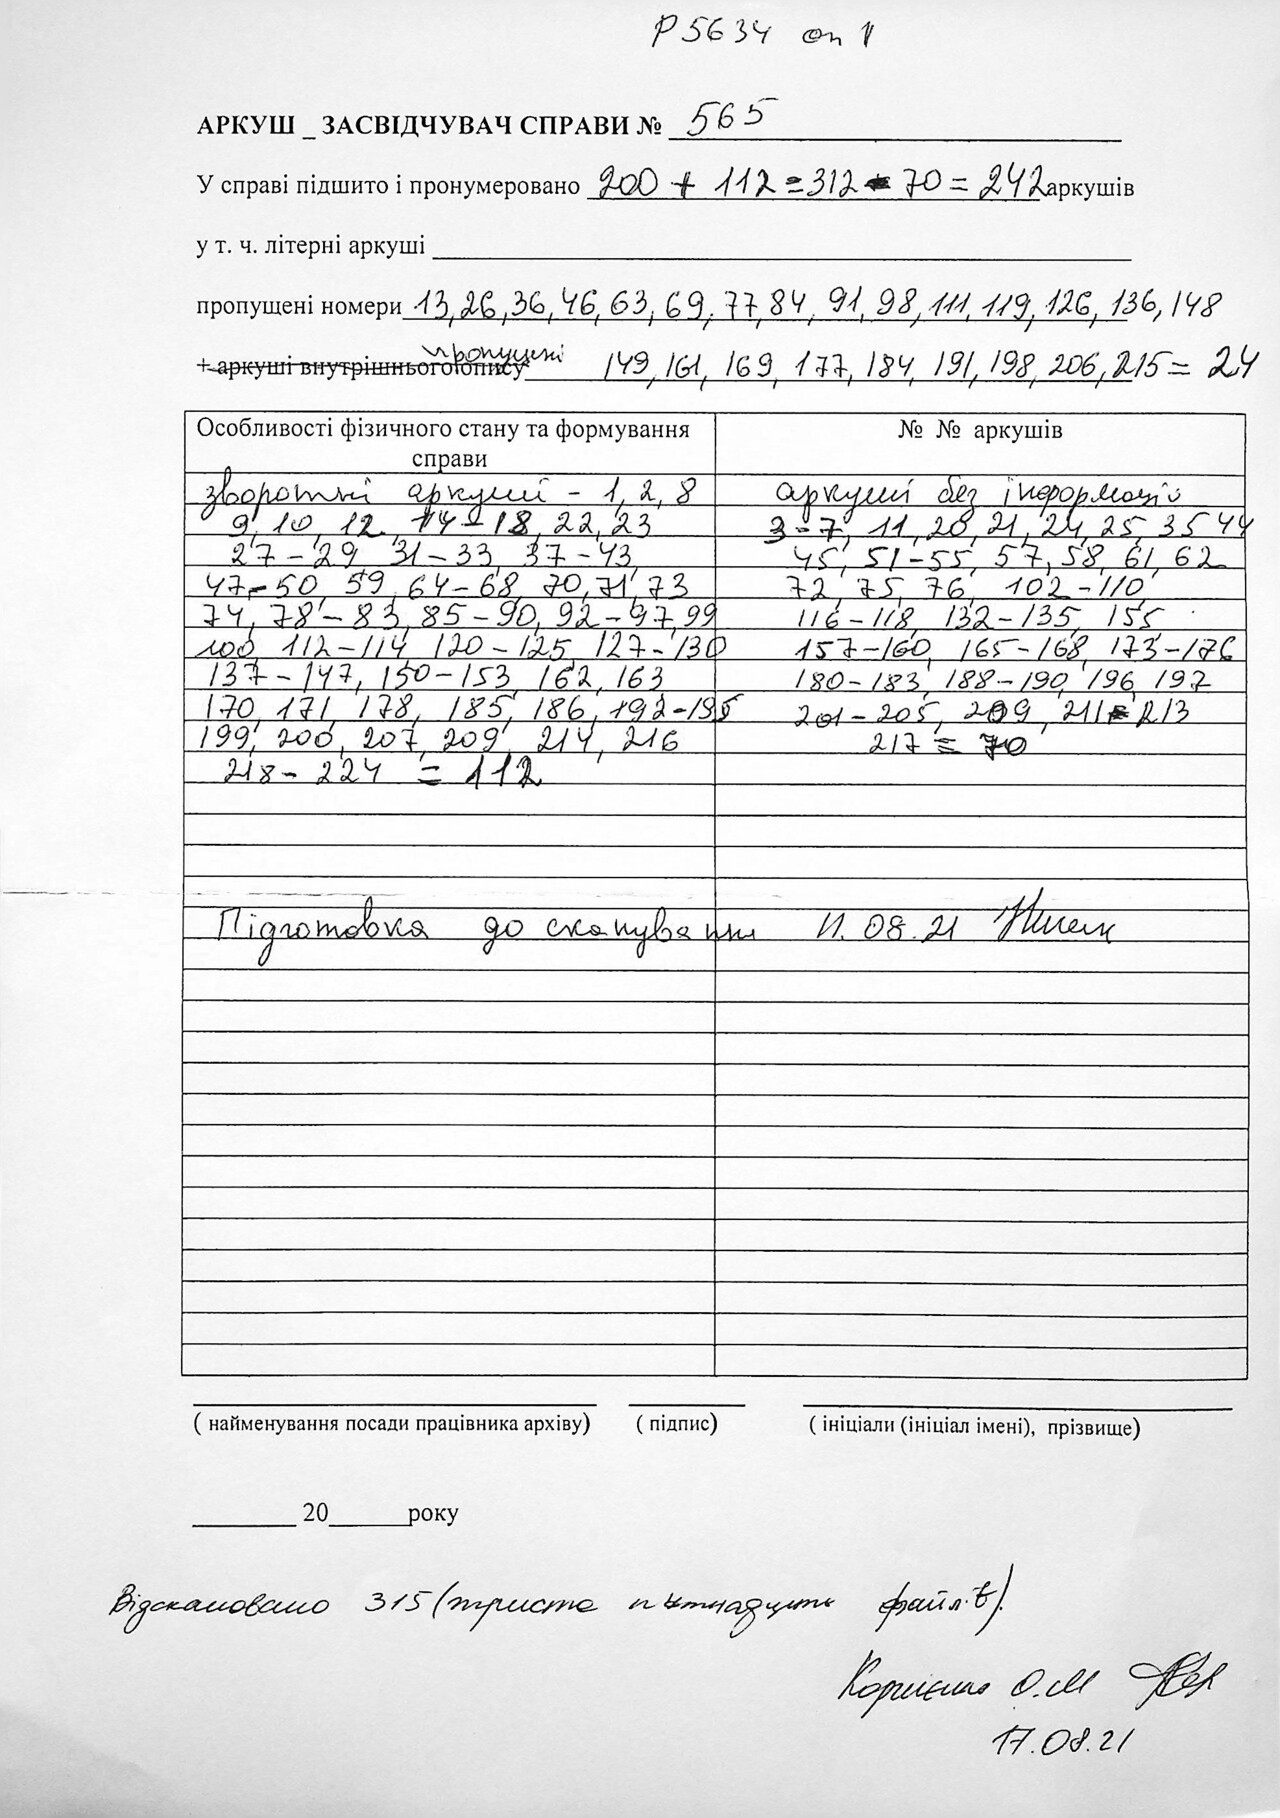 Р 5634 оп 1
АРКУШ _ ЗАСВІДЧУВАЧ СПРАВИ № 565
У справі підшито і пронумеровано 200 + 112 = 312 - 70 = 242 аркушів
у т. ч. літерні аркуші
пропущені номери 13, 26, 36, 46, 63, 69, 77, 84, 91, 98, 111, 119, 126, 136, 148
пропущені
+ аркуші внутрішнього опису 149, 161, 169, 177, 184, 191, 198, 206, 215 = 24
Особливості фізичного стану та формування справи
№ № аркушів
зворотні аркуші - 1, 2, 8
9, 10, 12, 14-18, 22, 23
27-29, 31-33, 37-43,
47-50, 59, 64-68, 70, 71, 73
74, 78-83, 85-90, 92-97, 99
100, 112-114, 120-125, 127-130
137-147, 150-153, 162, 163
170, 171, 178, 185, 186, 192-195
199, 200, 207, 209, 214, 216
218-224 = 112
аркуші без інформації
3-7, 11, 20, 21, 24, 25, 35 44
45, 51-55, 57, 58, 61, 62
72, 75, 76, 102-110,
116-118, 132-135, 155
157-160, 165-168, 173-176
180-183, 188-190, 196, 197
201-205, 209, 211-213
217 = 70
Підготовка до сканування 11.08.21
( найменування посади працівника архіву) ( підпис) ( ініціали (ініціал імені), прізвище)
20 року
Відскановано 315 (триста п'ятнадцять файлів).
О.М
17.08.21